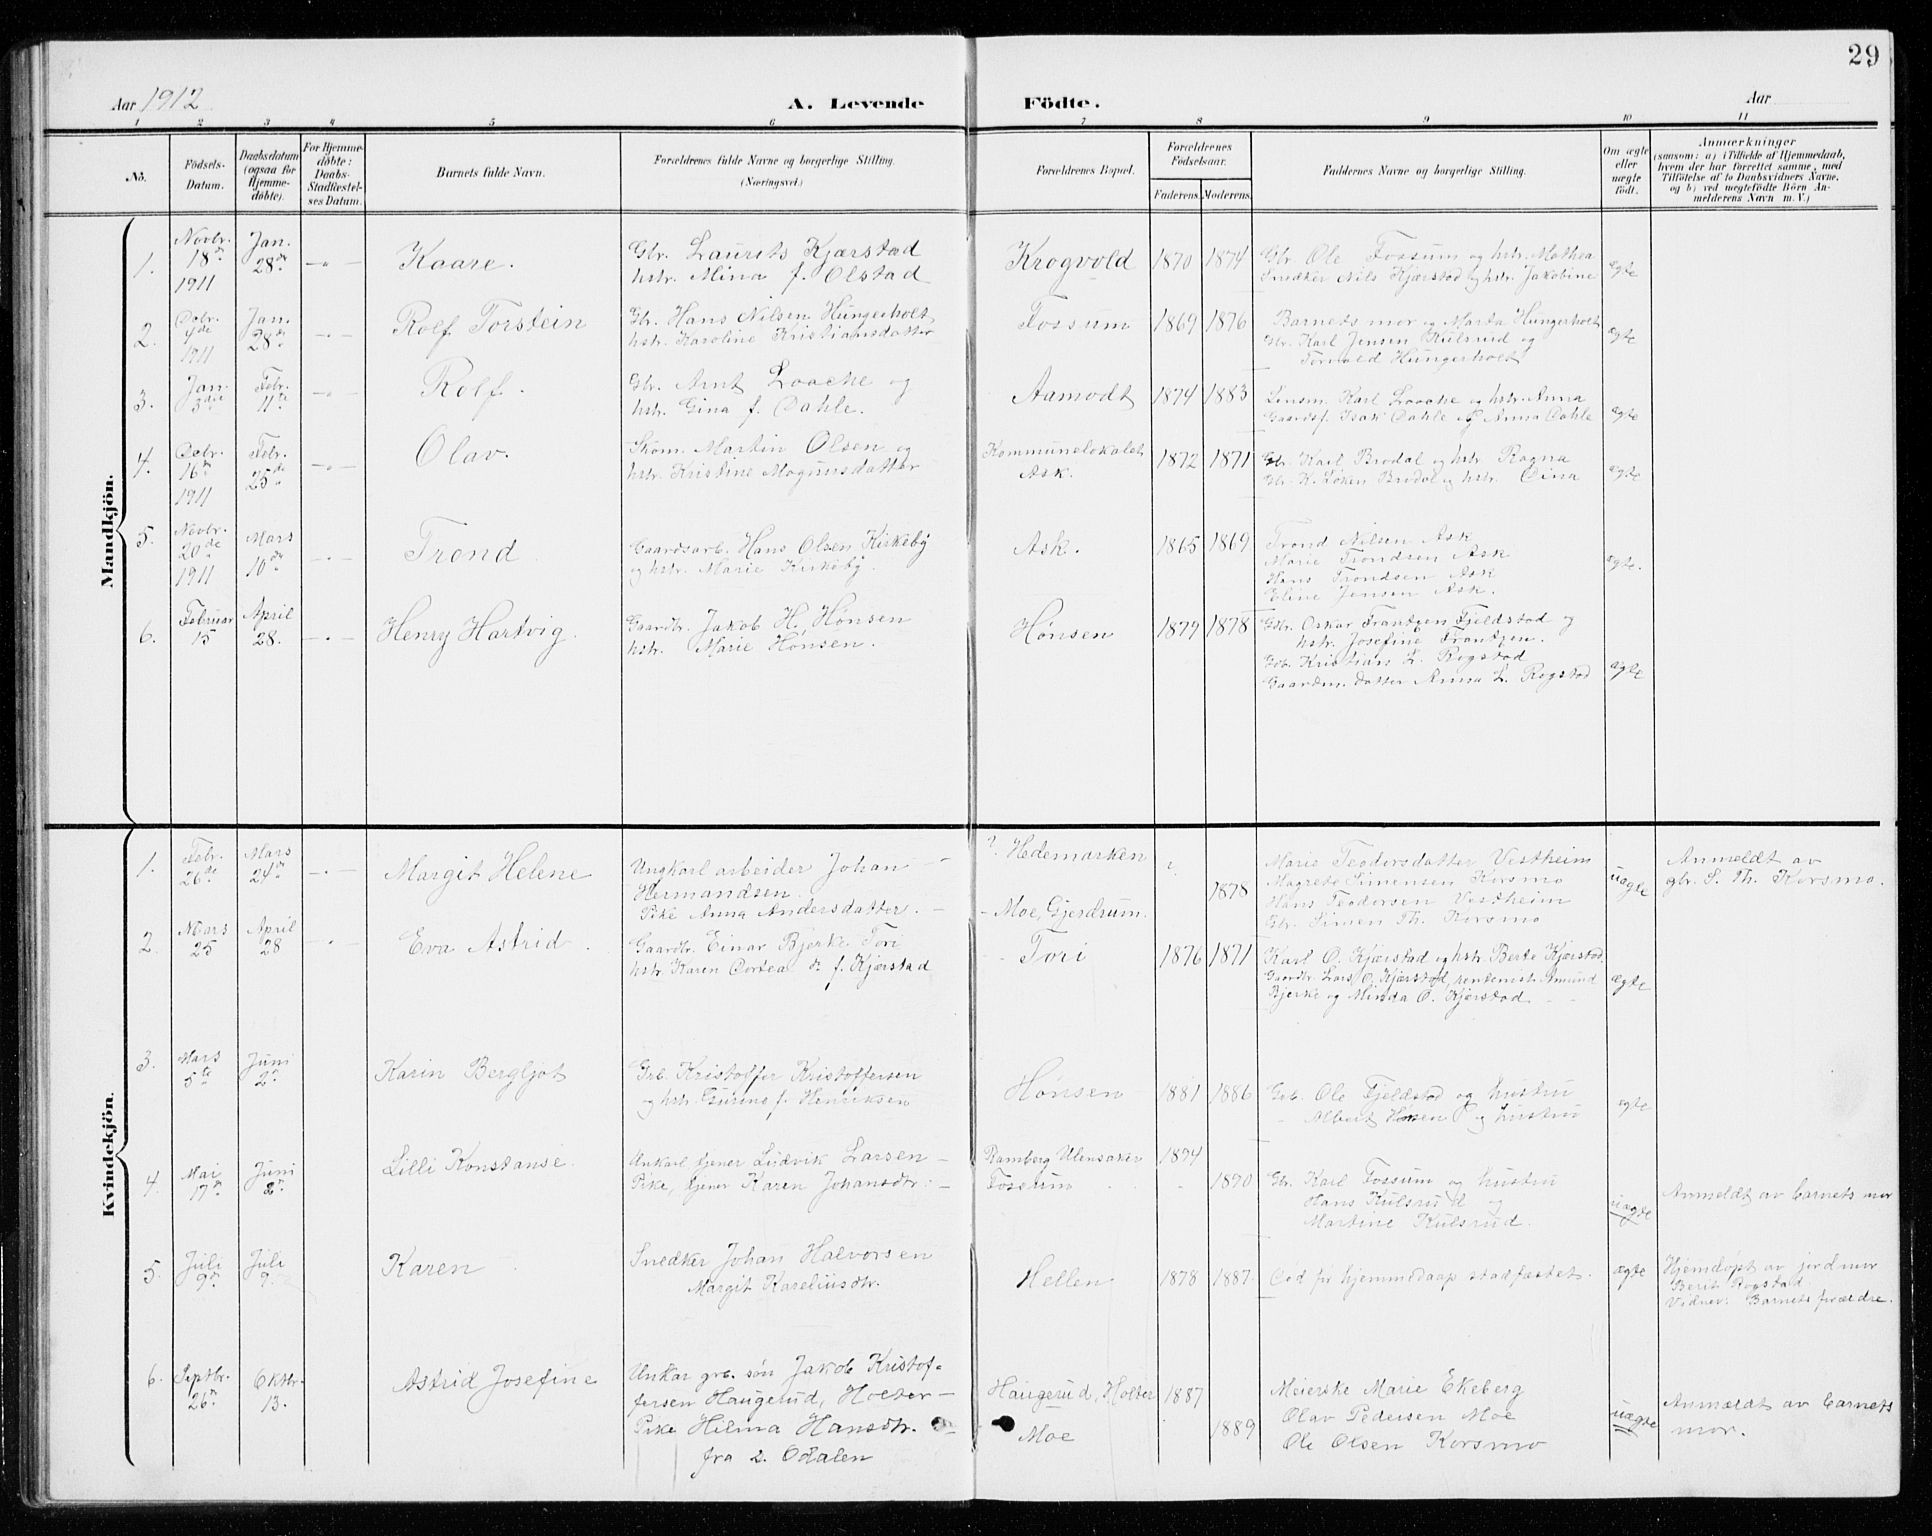 29
Aar 1912
A. Levende Födte.
Aar
1 2 3 4 5 6 7 8 9 10 11
No.
Födsels-Datum.
Daabsdatum (ogsaa for Hjemme-døbte).
For Hjemme-døbte: Daabs-Stadfæstel-ses Datum.
Barnets fulde Navn.
Forældrenes fulde Navne og borgerlige Stilling. (Næringsvei.)
Forældrenes Bopæl.
Forældrenes Födselsaar.
Faderens. Moderens.
Faddernes Navne og borgerlige Stilling.
Om ægte eller uægte født.
Anmærkninger
(saasom: a) i Tilfælde af Hjemmedaab, hvem der har forrettet samme, med Tilföielse af to Daabsvidners Navne, og b) ved uægtefödte Börn Anmelderens Navn m. V.)
Mandkjön.
1. Novbr. 18de 1911 Jan. 28de —„— Kaare. Gbr. Laurits Kjærstad hstr. Mina f. Olstad Krogvold 1870 1874 Gbr Ole Fossum og hstr. Mathea Snedker Nils Kjærstad og hstr. Jakobine ægte
2. Debr. 4de 1911 Jan. 28de —„— Rolf Torstein Gbr. Hans Nilsen Hungerholt hstr. Karoline Kristiansdatter Fossum 1869 1876 Barnets mor og Marta Hungerholt Gbr. Karl Jensen Kulsrud og Torvald Hungerholt ægte
3. Jan. 3die Febr. 11te —„— Rolf. Gbr. Arnt Laache og hstr. Gina f. Dahle. Aamodt 1874 1883 Lensm. Karl Laache og hstr. Anna Gaardsf. Isak Dahle og Anna Dahle ægte
4. Debr. 16de 1911 Febr. 25de —„— Olav. Skom. Martin Olsen og hstr. Kristine Magnusdatter Kommunelokalet Ask. 1872 1871 Gbr. Karl Brodal og hstr Ragna Gbr. K. Løken Brodal og hstr. Dina ægte
5. Novbr. 20de 1911 Mars 10de —„— Trond Gaardsarb. Hans Olsen Kirkeby og hstr. Marie Kirkeby. Ask. 1865 1869 Trond Nilsen Ask Marie Trondsen Ask Hans Trondsen Ask Eline Jensen Ask. ægte.
6. Februar 15 April 28. —„— Henry Hartvig. Gaardbr. Jakob H. Hønsen hstr. Marie Hønsen. Hønsen 1879 1878 Gbr. Oskar Frantzen Fjeldstad og hstr. Josefine Frantzen. Gbr. Kristian L. Rogstad Gaardm. datter Anna L. Rogstad ægte
Kvindekjön.
1. Febr. 26de Mars 24de —„— Margit Helene Ungkarl arbeider Johan — Hermandsen. Pike Anna Andersdatter. — ? Hedemarken - Moe, Gjerdrum. ? 1878 Marie Teodorsdatter Vestheim Magrete Simensen Korsmo Hans Teodorsen Vestheim Gbr. Simen Th. Korsmo uægte Anmeldt av gbr. S. Th. Korsmo.
2. Mars 25 April 28 —„— Eva Astrid. Gaardbr. Einar Bjerke Tori hstr Karen Dortea f. Kjærstad Tori 1876 1871 Karl O. Kjærstad og hstr. Berte Kjærstad Gaardbr. Lars O. Kjærstad, rentenist Amund Bjerke og Minda O. Kjærstad ægte
3. Mars 5te Juni 2n Karin Bergljot Grb. Kristoffer Kristoffersen og hstr. Gurine f. Henriksen Hønsen 1881 1886 Grb. Ole Fjeldstad og hustru Albert Hønsen og hustru ægte
4. Mai 17n Juni 2n Lilli Konstanse. Unkarl tjener Ludvik Larsen — Pike, tjener Karen Johansdtr: - Ramberg Ulensaker Fossum 1894 1890 Gb. Karl Fossum og hustru Hans Kulsrud og Martine Kulsrud. uægte Anmeldt av barnets mor
5. Juli 9n Juli 9. Karen Snedker Johan Halvorsen Margit Kareliusdtr. Hellen 1878 1887. Død før hjemmedaap stadfæstet. ægte Hjemdøpt av jordmor Berit Rogstad Vidner: Barnets forældre.
6. Septbr. 26n Oktbr. 13. Astrid Josefine Unkar grb. søn Jakob Kristoffersen Haugerud, Holter — Pike Hilma Hansdtr. fra S. Odalen Haugerud, Holter Moe 1887 1889 Meierske Marie Ekeberg Olav Pedersen Moe Ole Olsen Korsmo uægte Anmældt av barnets mor.